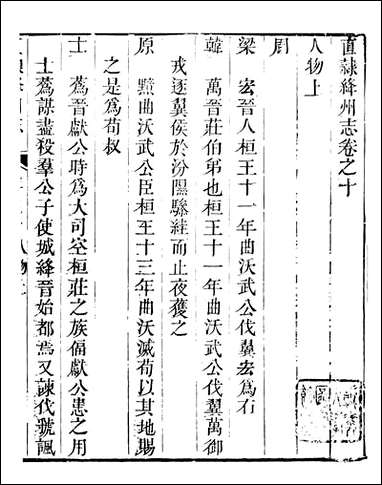 直隸絳州志卷之十
人物上
周
梁　宏晉人桓王十一年曲沃武公伐翼宏爲右
韓　萬晉莊伯弟也桓王十一年曲沃武公伐翼萬御
戎逐翼侯於汾隰驂絓而止夜獲之
原　黯曲沃武公臣桓王十三年曲沃滅荀以其地賜
之是爲荀叔
士　蒍晉獻公時爲大司空桓莊之族偪獻公患之用
士蒍謀盡殺羣公子使城絳晉始都焉又諫伐虢諷